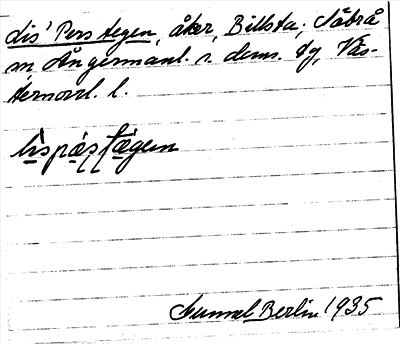 Lis' Pers tegen, åker, Billsta, Säbrå
sn Ångermanl. s. doms. tg, Väs-
ternorrl. l.
lispæṣtægen
Gunnel Berlin 1935